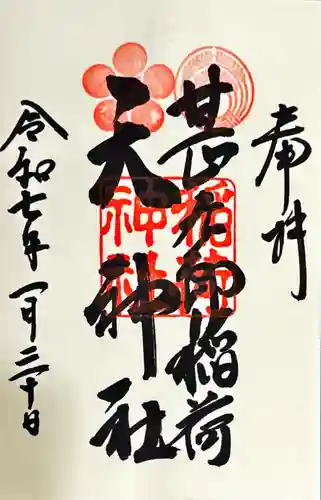 奉拝
稲荷
天神社
令和七年一月二十日
稲荷
神社